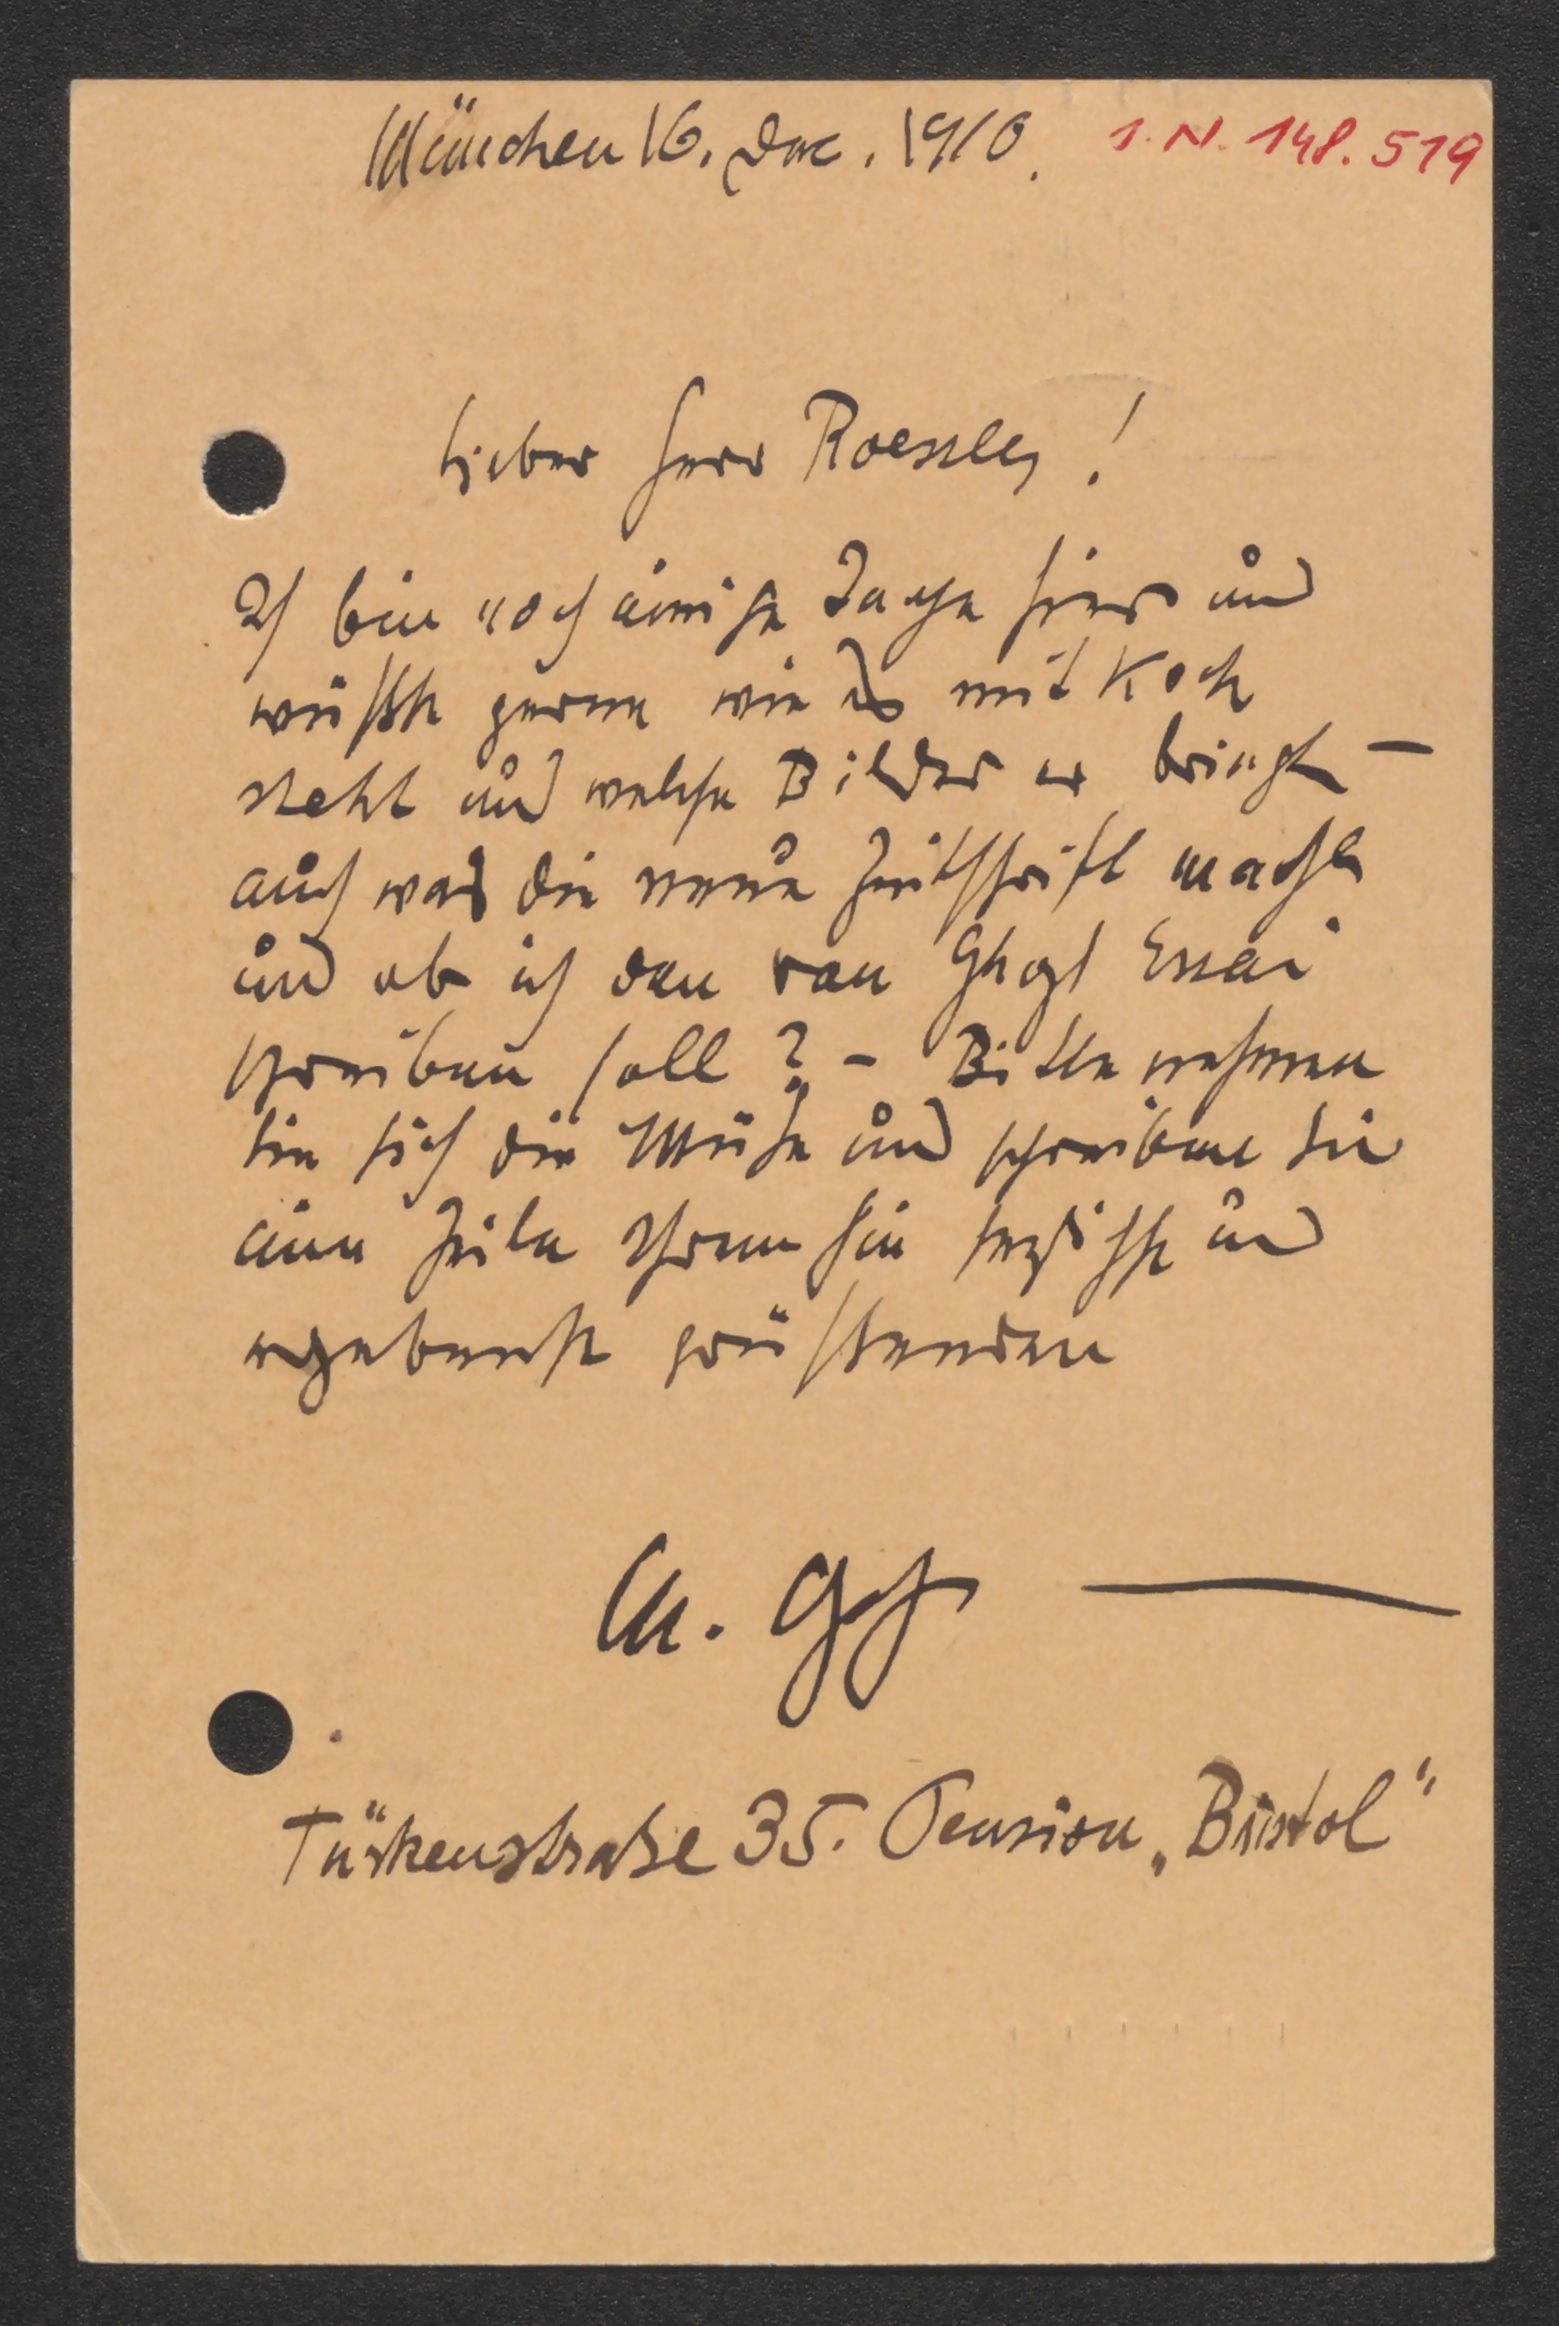 München 16. Dec. 1910. I.N. 148.519
Lieber Herr Roessler!
Ich bin noch einige Tage hier und
wüßte gerne wie es mit Koch
steht und welche Bilder er bringt —
auch was die neue Zeitschrift macht
und ob ich den van Ghogh Essai
schreiben soll? – Bitte nehmen
Sie sich die Mühe und schreiben Sie
eine Zeile Ihrem Sie herzlichst und
ergebenst grüßenden
Türkenstraße 35. Pension „Bristol“